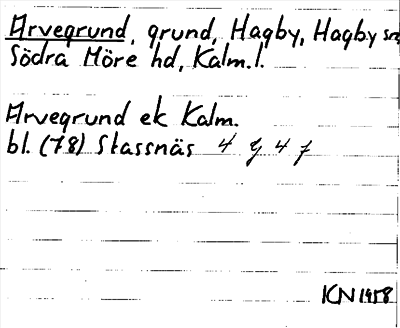 Arvegrund, grund, Hagby, Hagby sn,
Södra Möre hd, Kalm. l.
Arvegrund ek Kalm.
bl. (78) Stassnäs 4 g 4 f
KN 1958